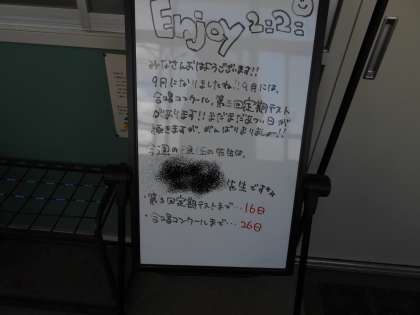 Enjoy 2:2:
みなさんおはようございます!!
9月になりましたね!!9月には、
合唱コンクール、第三回定期テスト
があります!!まだまだあつい日が
続きますが、がんばりましょー!!
今週の
の先生は、
先生です
・第3回定期テストまで…16日
・合唱コンクールまで…26日